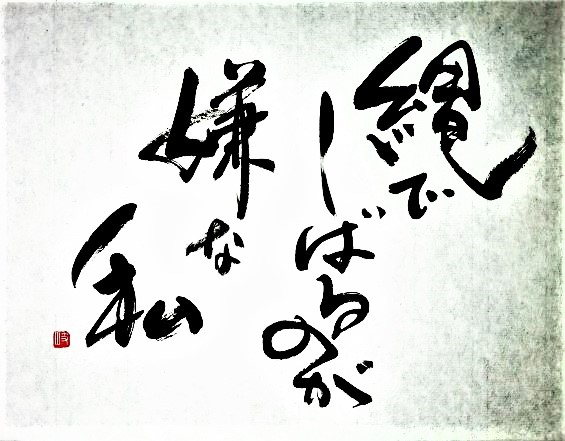 縄で
しばるのが
嫌な
私